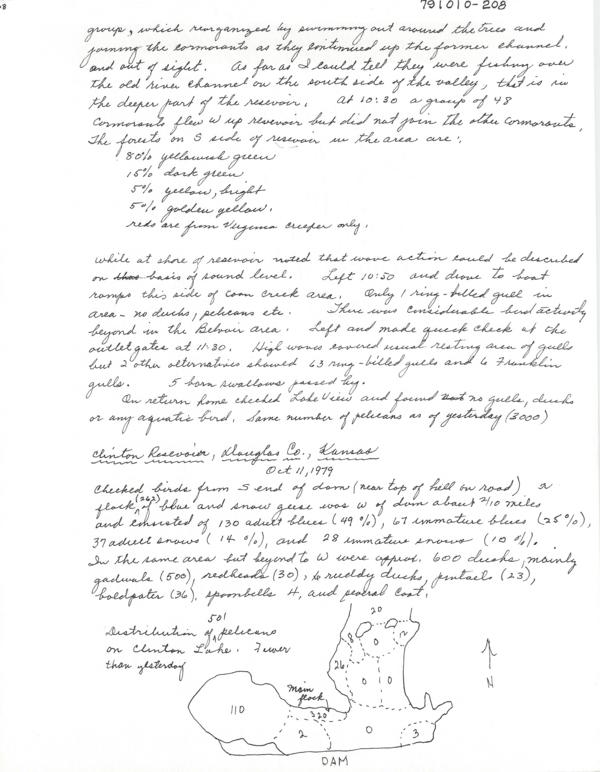 8
791010-208
group, which reorganized by swimming out around the trees and
joining the cormorants as they continued up the former channel.
and out of sight. As far as I could tell they were fishing over
the old river channel on the south side of the valley, that is in
the deeper part of the resevoir. At 10:30 a group of 48
Cormorants flew W up revervoir but did not join the other cormorants.
The forests on S side of resevoir in the area are:
80% yellowish green
15% dark green
5% yellow, bright
5% golden yellow.
reds are from Virginia creeper only.
while at shore of reservoir noted that wave action could be described
on basis of sound level. Left 10:50 and drove to boat
ramps this side of Coon Creek area. Only 1 ring-billed gull in
area - no ducks, pelicans etc. There was considerable bird activity
beyond in the Belvoir area. Left and made quick check at the
outlet gates at 11:30. High waves covered usual resting area of gulls
but 2 other alternatives showed 63 ring-billed gulls and 6 Franklin
gulls. 5 barn swallows passed by.
On return home checked Lake View and found no gulls, ducks
or any aquatic bird. Same number of pelicans as of yesterday (3000)
Clinton Resevoir, Douglas Co., Kansas
Oct 11, 1979
Checked birds from S end of dam (near top of hell on road) a
flock (262) of blue and snow geese was W of dam about 2/10 miles
and consisted of 130 adult blues (49%), 67 immature blues (25%),
37 adult snows (14%), and 28 immature snows (10%).
In the same area but beyond to W were approx. 600 ducks, mainly
gadwals (500), redheads (30), 6 ruddy ducks, pintails (23),
baldpates (36), spoonbills 4, and several coot.
501
Distribution of pelicans
on Clinton Lake. Fewer
than yesterday
20
8
0
2
26
0
0
N
main
flock
110
320
2
0
3
DAM